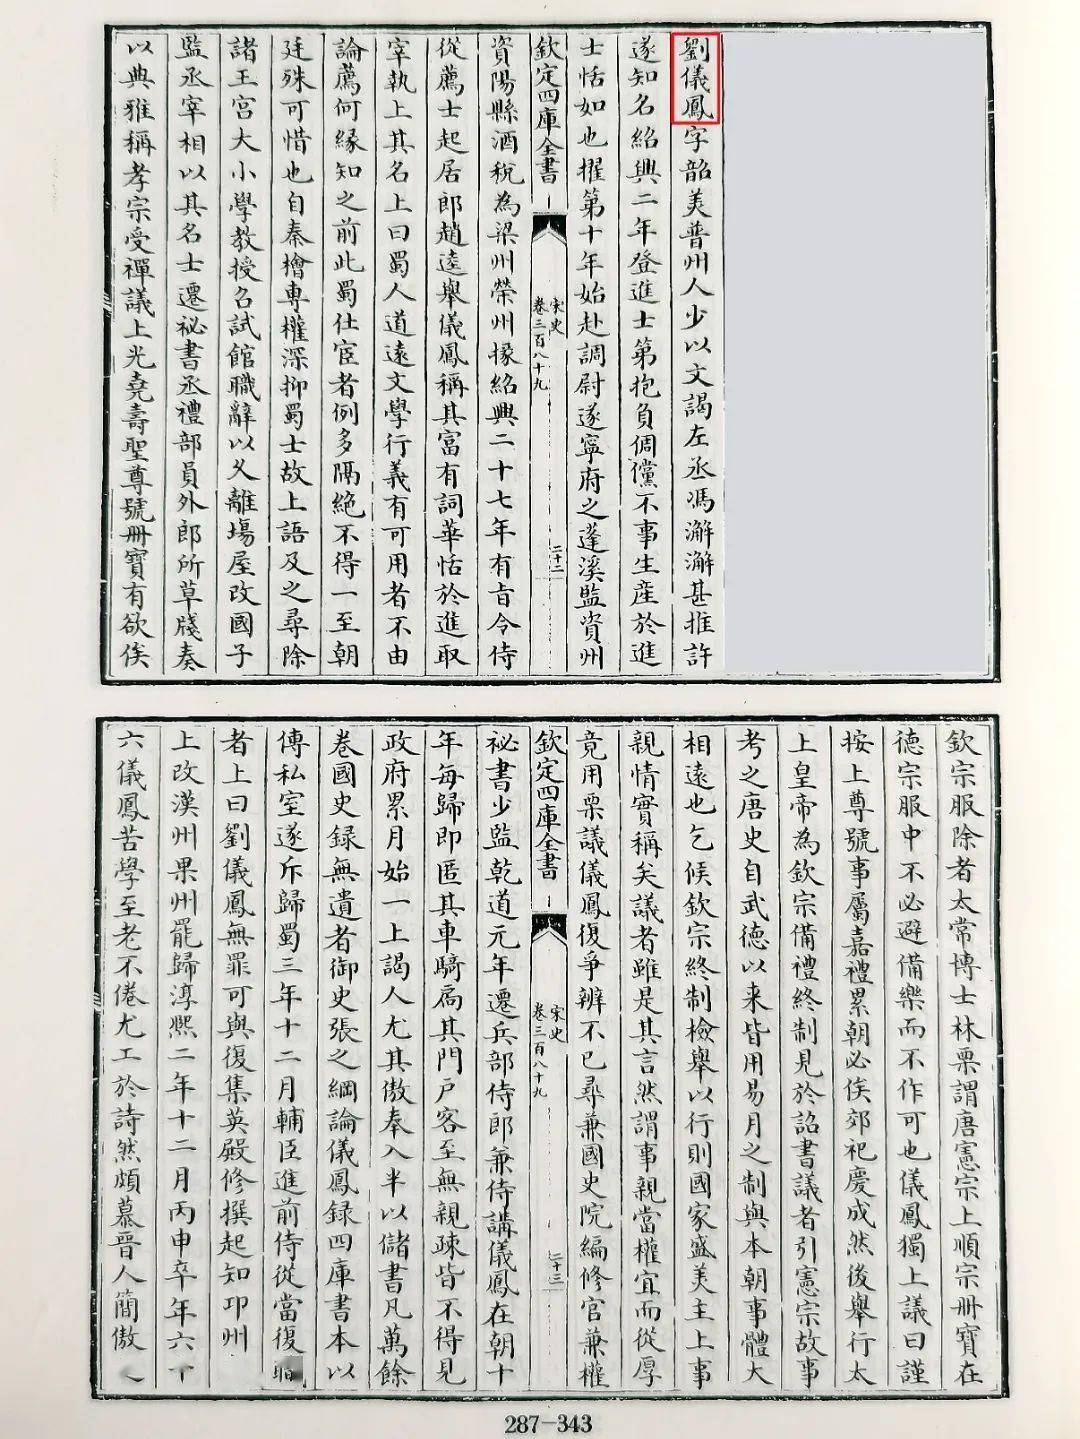 劉儀鳳字韶美普州人少以文謁左丞馮澥澥甚推許
遂知名紹興二年登進士第抱負倜儻不事生産於進
士恬如也擢第十年始赴調尉遂寧府之蓬溪監資州
欽定四庫全書
宋史
卷三百八十九
二十二
資陽縣酒稅為梁州榮州掾紹興二十七年有旨令侍
從薦士起居郎趙逵舉儀鳳稱其富有詞華恬於進取
宰執上其名上曰蜀人道遠文學行義有可用者不由
論薦何縁知之前此蜀仕宦者例多隔絶不得一至朝
廷殊可惜也自秦檜專權深抑蜀士故上語及之尋除
諸王宮大小學教授召試館職辭以乆離場屋改國子
監丞宰相以其名士遷祕書丞禮部員外郎所草牋奏
以典雅稱孝宗受禪議上光堯壽聖尊號冊寶有欲俟
欽宗服除者太常博士林栗謂唐憲宗上順宗冊寶在
德宗服中不必避備樂而不作可也儀鳳獨上議曰謹
按上尊號事屬嘉禮累朝必俟郊祀慶成然後舉行太
上皇帝為欽宗備禮終制見於詔書議者引憲宗故事
考之唐史自武德以来皆用易月之制與本朝事體大
相逺也乞候欽宗終制檢舉以行則國家盛美主上事
親情實稱矣議者雖是其言然謂事親當權宜而從厚
竟用栗議儀鳳復爭辨不已尋兼國史院編修官兼權
欽定四庫全書
宋史
卷三百八十九
二十三
祕書少監乾道元年遷兵部侍郎兼侍講儀鳳在朝十
年每歸即匿其車騎扃其門戶客至無親疎皆不得見
政府累月始一上謁人尤其傲奉入半以儲書凡萬餘
巻國史録無遺者御史張之綱論儀鳳録四庫書本以
傳私室遂斥歸蜀三年十二月輔臣進前侍從當復
者上曰劉儀鳳無罪可與復集英殿修撰起知邛州
上改漢州果州罷歸淳熙二年十二月丙申卒年六
六儀鳳苦學至老不倦尤工於詩然頗慕晉人簡傲
287-343